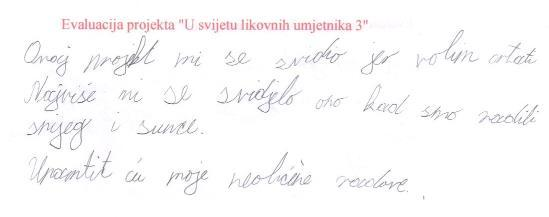 Evaluacija projekta "U svijetu likovnih umjetnika 3"
Ovaj projekt mi se svidio jer volim crtati
Najviše mi se svidjelo ono kad smo radili
snijeg i sunce.
Upamtit ću moje neobične radove.